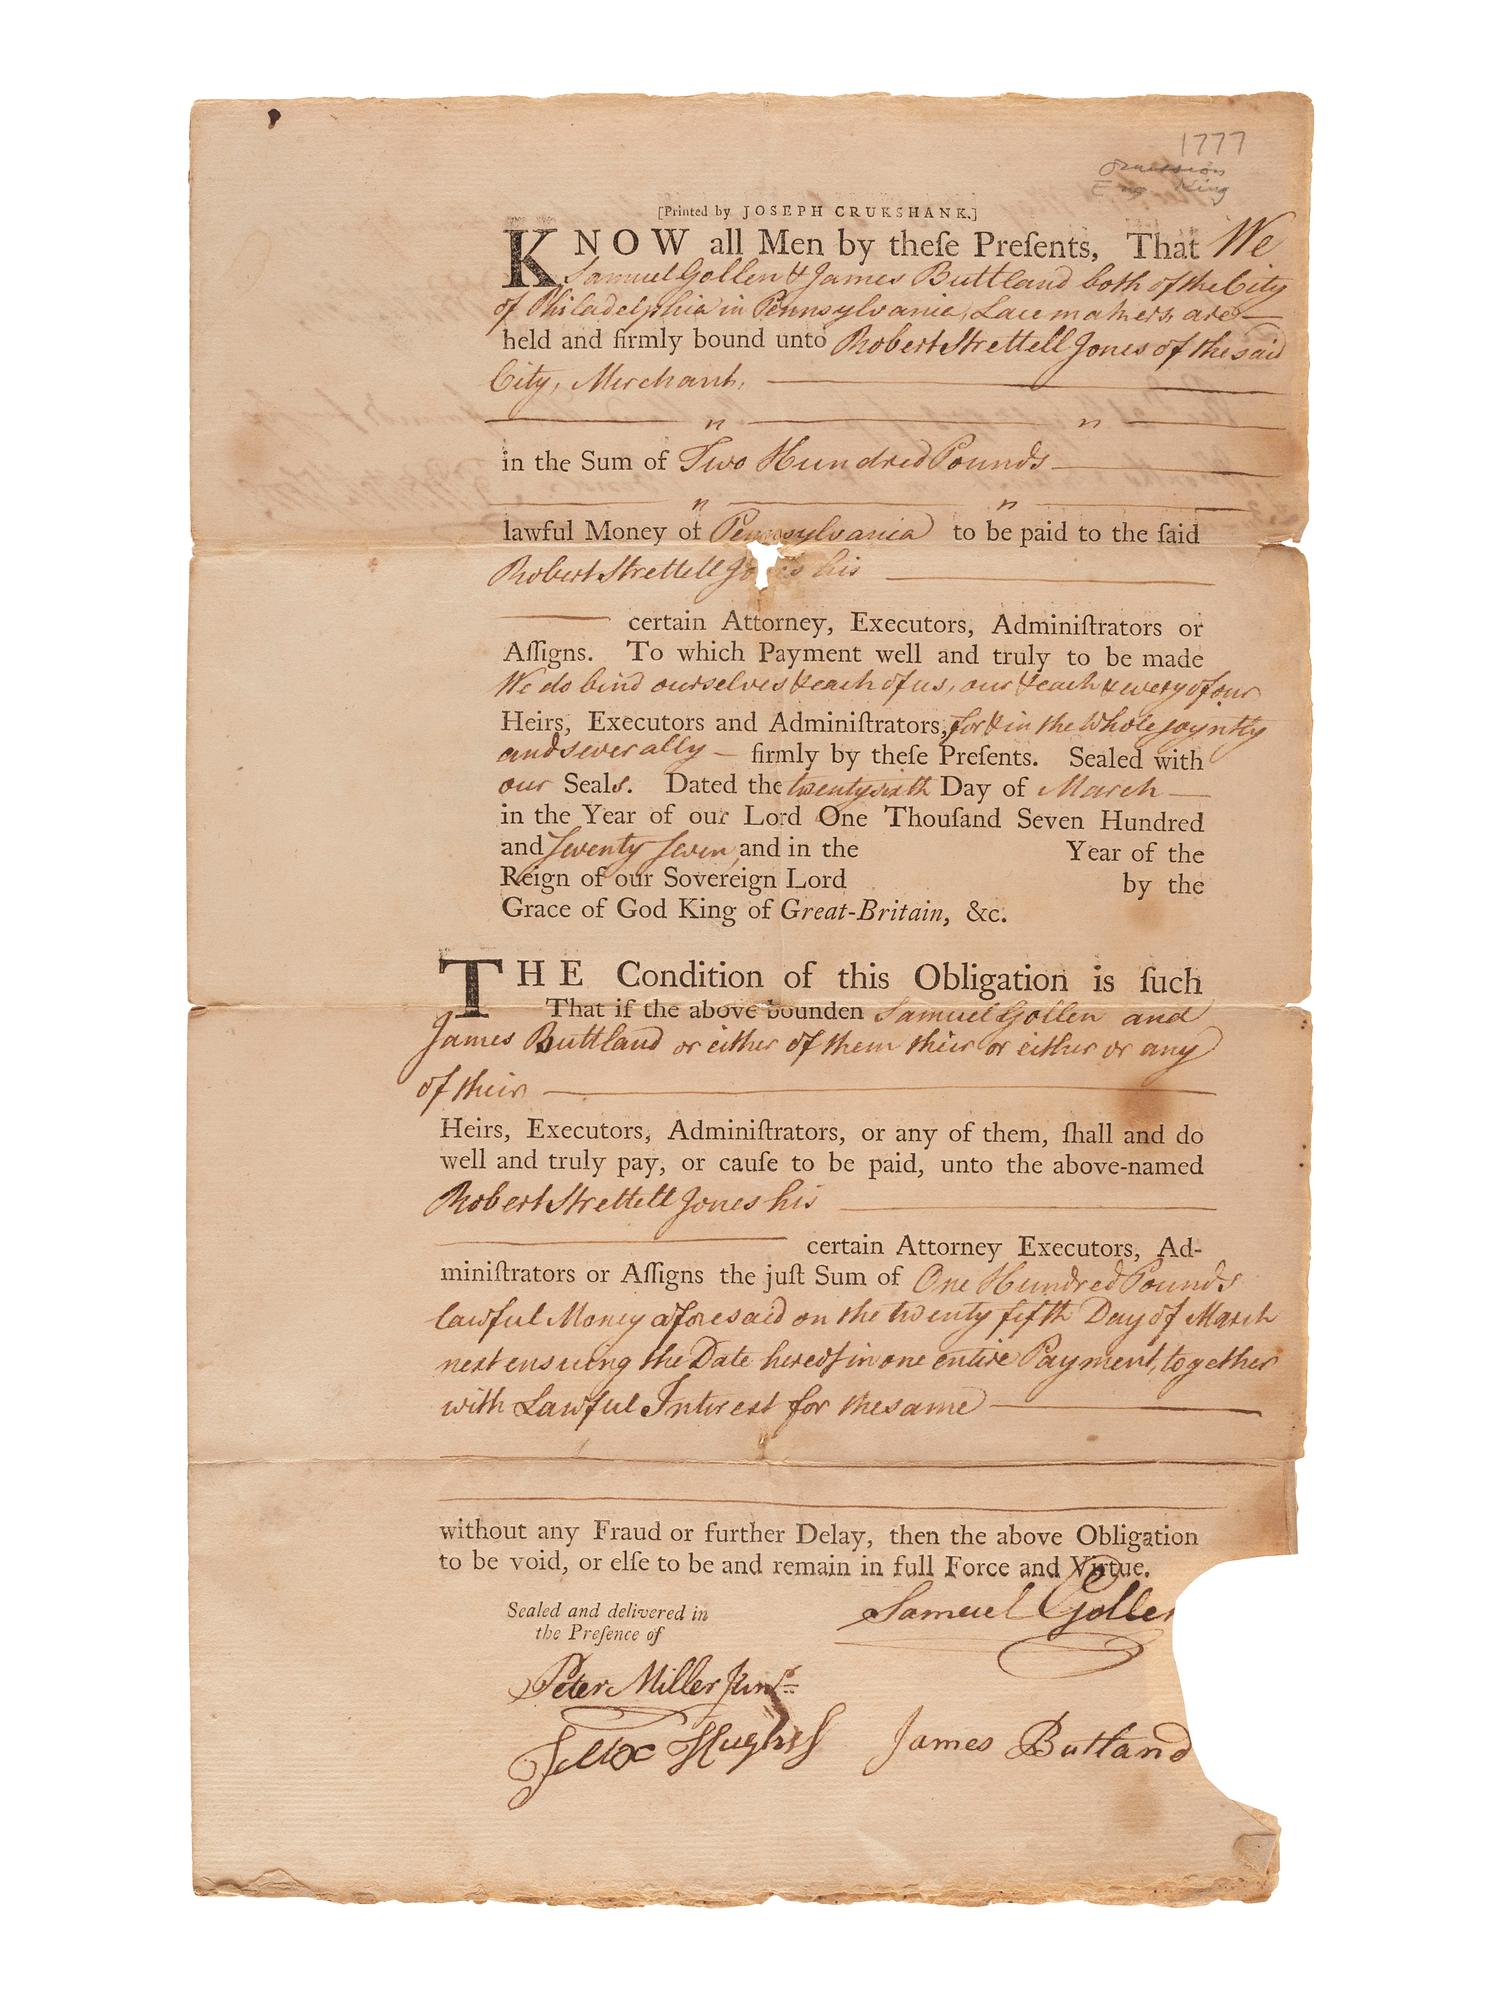 1777
Omission
Eng King
[Printed by JOSEPH CRUKSHANK.]
KNOW all Men by theſe Preſents, That We
Samuel Gollen & James Buttland both of the City
of Philadelphia in Pennsylvania, Lacemakers, are
held and firmly bound unto Robert Strettell Jones of the said
City, Merchant,
in the Sum of Two Hundred Pounds
lawful Money of Pennsylvania to be paid to the ſaid
Robert Strettell Jones his
certain Attorney, Executors, Adminiſtrators or
Aſſigns. To which Payment well and truly to be made
We do bind ourselves & each of us, our & each & every of our
Heirs, Executors and Adminiſtrators, for & in the Whole joyntly
and severally firmly by theſe Preſents. Sealed with
our Seals. Dated the twenty sixth Day of March
in the Year of our Lord One Thouſand Seven Hundred
and Seventy Seven, and in the Year of the
Reign of our Sovereign Lord by the
Grace of God King of Great-Britain, &c.
THE Condition of this Obligation is ſuch
That if the above bounden Samuel Gollen and
James Buttland or either of them their or either or any
of their
Heirs, Executors, Adminiſtrators, or any of them, ſhall and do
well and truly pay, or cauſe to be paid, unto the above-named
Robert Strettell Jones his
certain Attorney Executors, Ad-
miniſtrators or Aſſigns the juſt Sum of One Hundred Pounds
lawful Money aforesaid on the twenty fifth Day of March
next ensuing the Date hereof in one entire Payment, together
with Lawful Interest for the same
without any Fraud or further Delay, then the above Obligation
to be void, or elſe to be and remain in full Force and Virtue.
Sealed and delivered in
the Preſence of
Samuel Gollen
Peter Miller Junr
Felix Hughes
James Butland